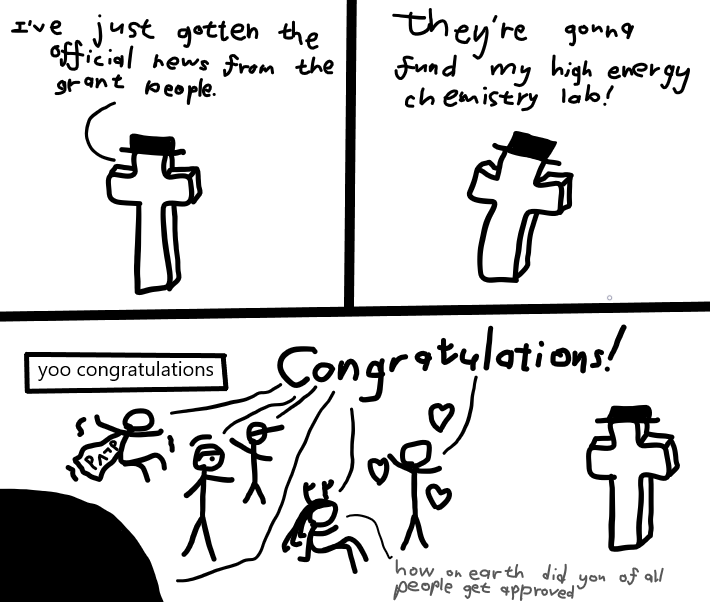 I've just gotten the
official news from the
grant people.
They're gonna
fund my high energy
chemistry lab!
yoo congratulations
Congratulations!
how on earth did you of all
people get approved